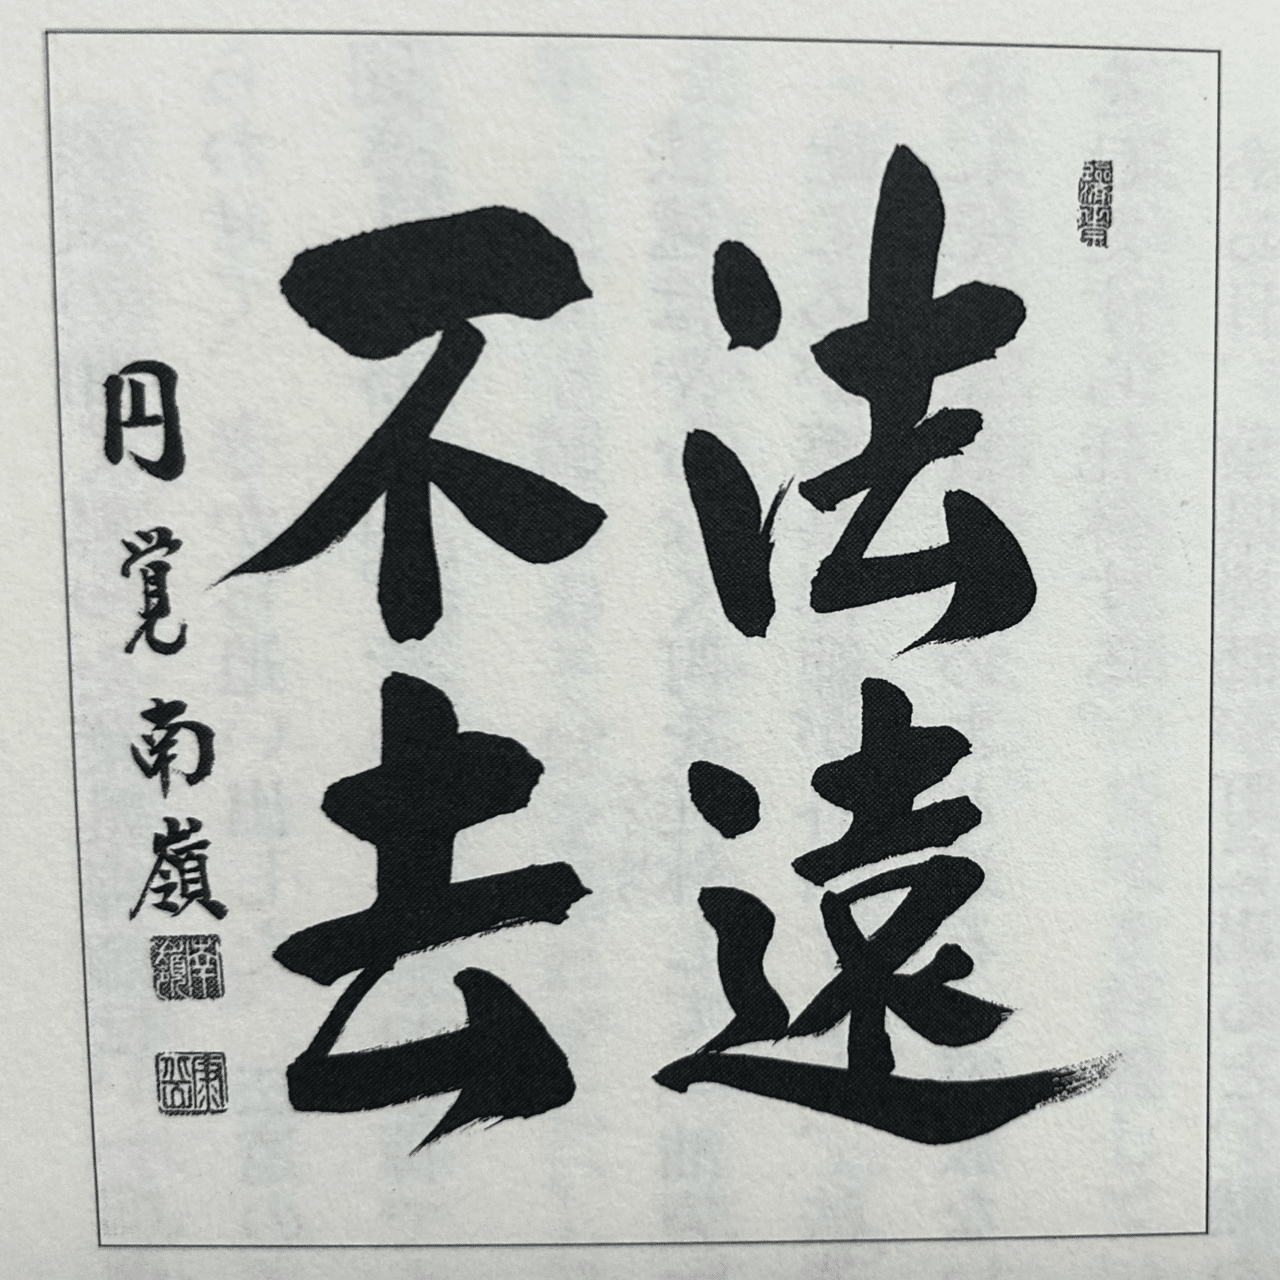 法遠
不去
円覚南嶺
南嶺